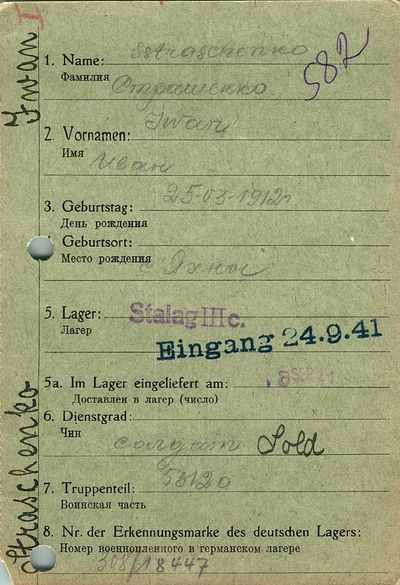 Iwan
Straschenko
582
1. Name: Sstraschenko
Фамилия
Страшенко
Iwan
2. Vornamen:
Имя
Иван
25-03-1912
3. Geburtstag:
День рождения
Geburtsort:
Место рождения
Яхны
5. Lager: Stalag III c.
Лагерь
Eingang 24.9.41
5a. Im Lager eingeliefert am: SEP 41
Доставлен в лагерь (число)
6. Dienstgrad:
Чин
солдат Sold
7. Truppenteil:
Воинская часть
8. Nr. der Erkennungsmarke des deutschen Lagers:
Номер военнопленного в германском лагере
308/18447